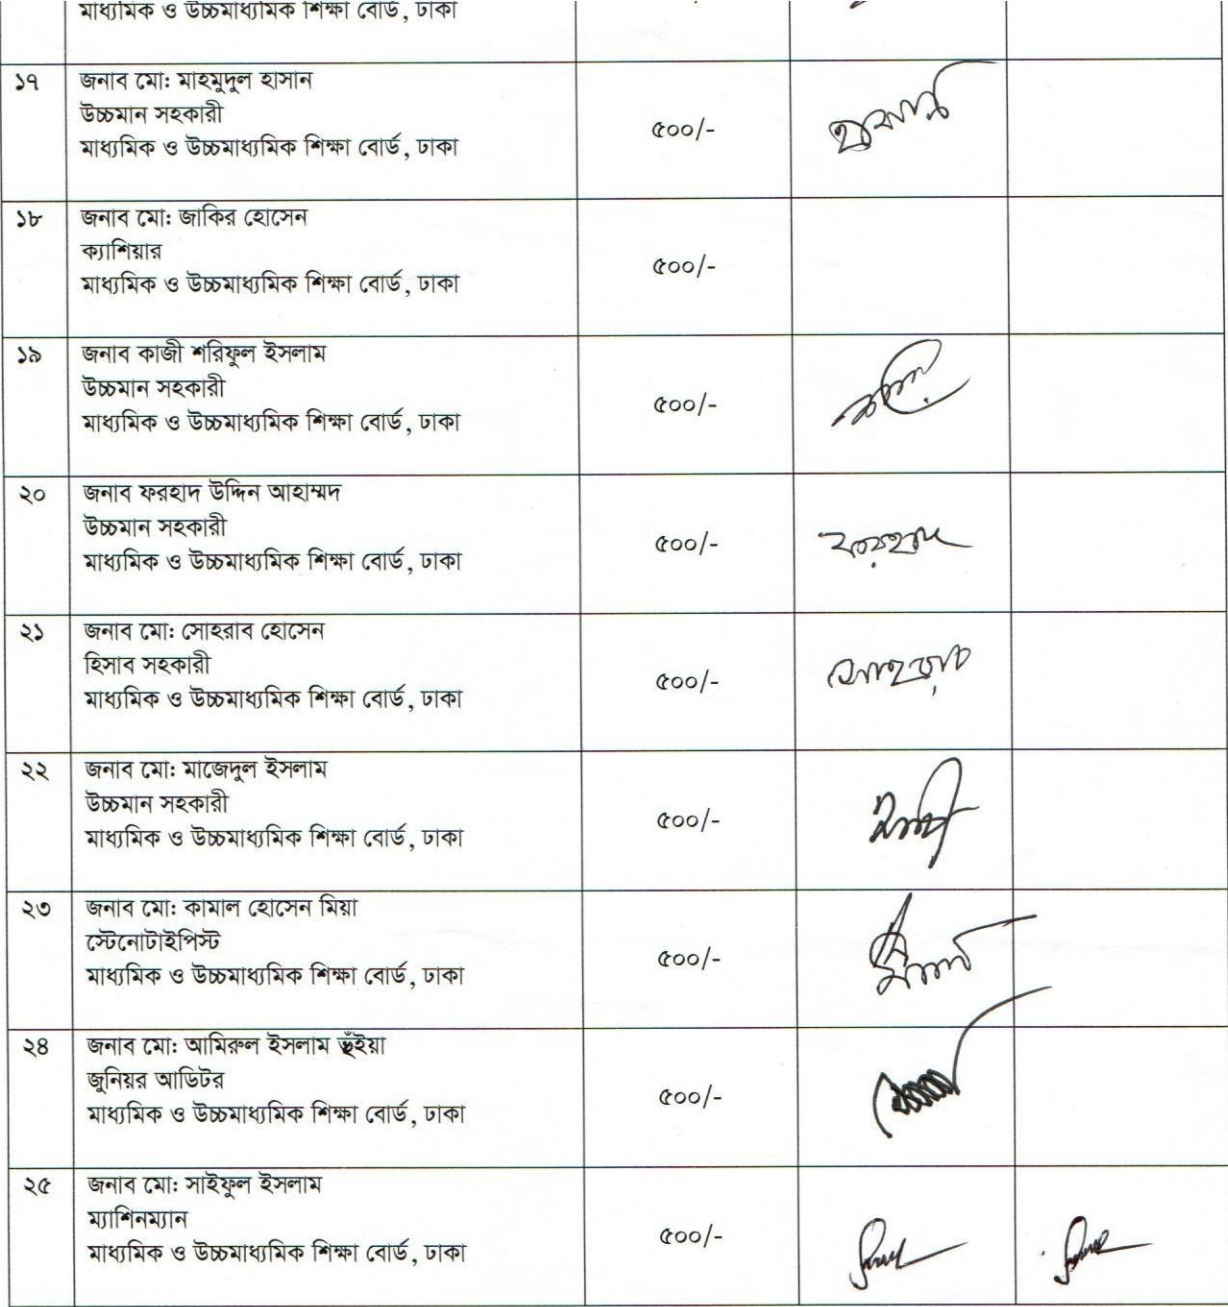 মাধ্যমিক ও উচ্চমাধ্যমিক শিক্ষা বোর্ড, ঢাকা
১৭ জনাব মো: মাহমুদুল হাসান
উচ্চমান সহকারী
মাধ্যমিক ও উচ্চমাধ্যমিক শিক্ষা বোর্ড, ঢাকা ৫০০/-
১৮ জনাব মো: জাকির হোসেন
ক্যাশিয়ার
মাধ্যমিক ও উচ্চমাধ্যমিক শিক্ষা বোর্ড, ঢাকা ৫০০/-
১৯ জনাব কাজী শরিফুল ইসলাম
উচ্চমান সহকারী
মাধ্যমিক ও উচ্চমাধ্যমিক শিক্ষা বোর্ড, ঢাকা ৫০০/-
২০ জনাব ফরহাদ উদ্দিন আহাম্মদ
উচ্চমান সহকারী
মাধ্যমিক ও উচ্চমাধ্যমিক শিক্ষা বোর্ড, ঢাকা ৫০০/- ফরহাদ
২১ জনাব মো: সোহরাব হোসেন
হিসাব সহকারী
মাধ্যমিক ও উচ্চমাধ্যমিক শিক্ষা বোর্ড, ঢাকা ৫০০/- সোহরাব
২২ জনাব মো: মাজেদুল ইসলাম
উচ্চমান সহকারী
মাধ্যমিক ও উচ্চমাধ্যমিক শিক্ষা বোর্ড, ঢাকা ৫০০/-
২৩ জনাব মো: কামাল হোসেন মিয়া
স্টেনোটাইপিস্ট
মাধ্যমিক ও উচ্চমাধ্যমিক শিক্ষা বোর্ড, ঢাকা ৫০০/-
২৪ জনাব মো: আমিরুল ইসলাম ভূঁইয়া
জুনিয়র আডিটর
মাধ্যমিক ও উচ্চমাধ্যমিক শিক্ষা বোর্ড, ঢাকা ৫০০/-
২৫ জনাব মো: সাইফুল ইসলাম
ম্যাশিনম্যান
মাধ্যমিক ও উচ্চমাধ্যমিক শিক্ষা বোর্ড, ঢাকা ৫০০/-